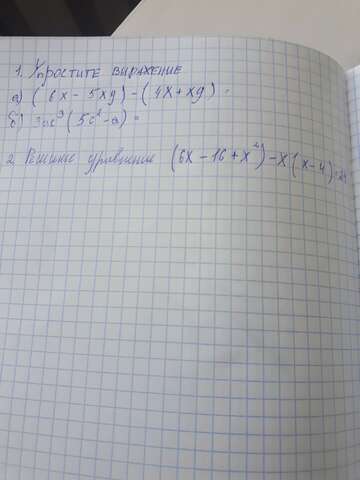 1. Упростите выражение
а) (6x - 5xy) - (4x + xy) =
б) 3ac³(5c² - a) =
2. Решите уравнение (6x - 16 + x²) - x(x - 4) = 24